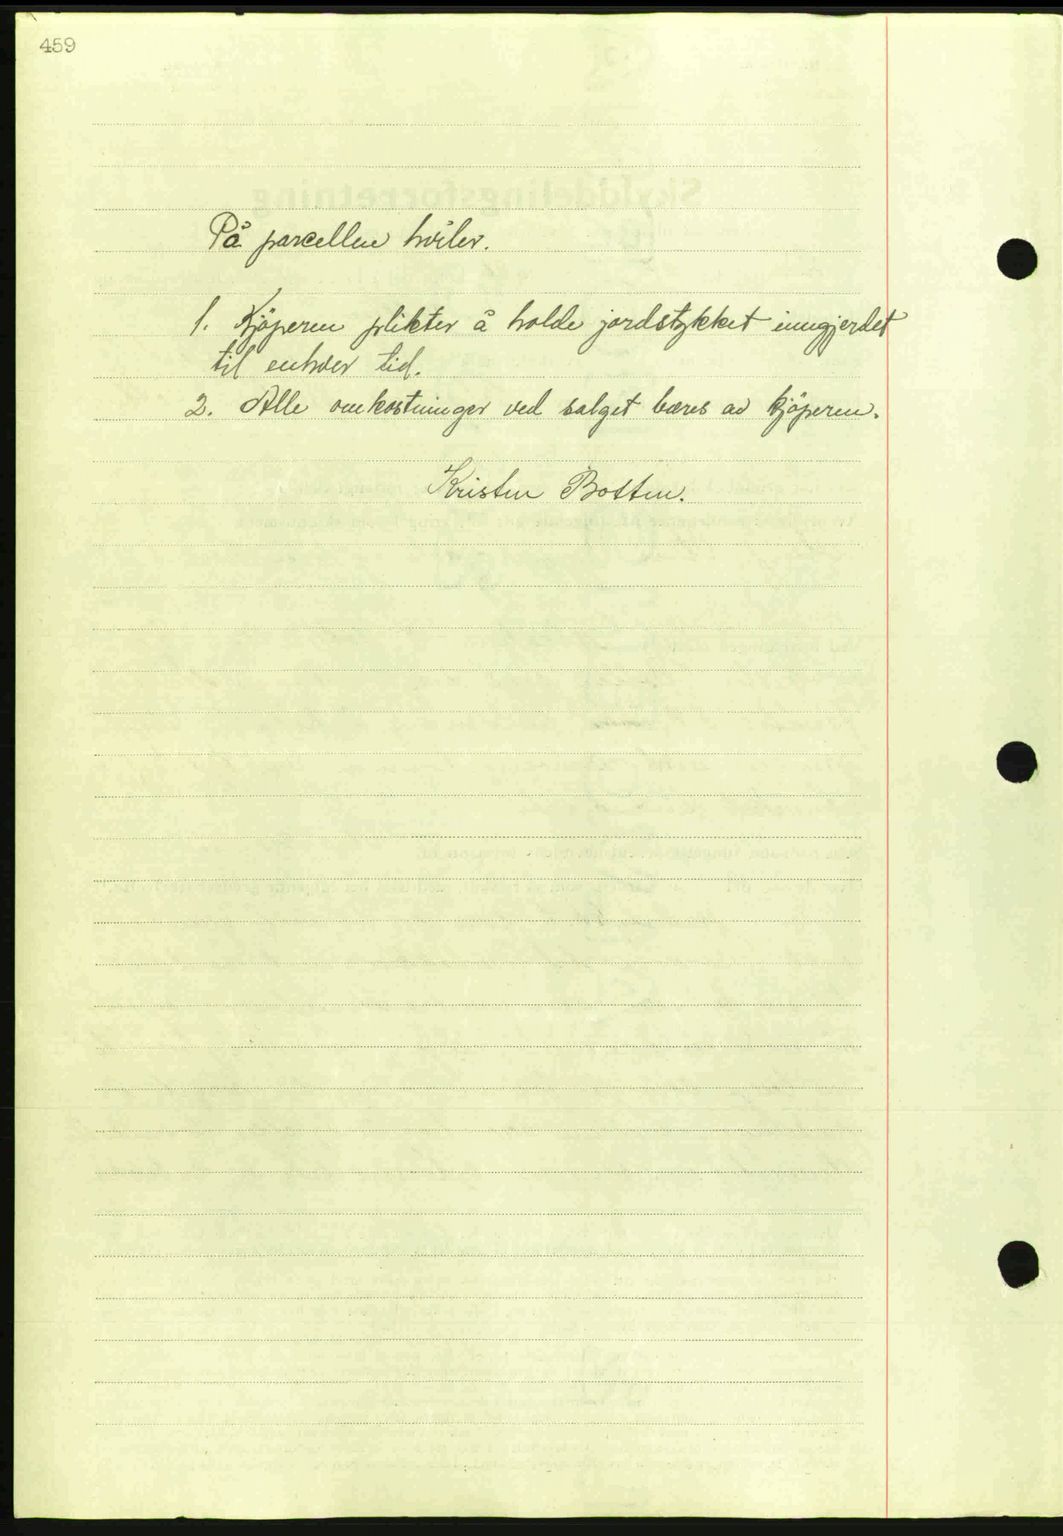 459
På parcellen hviler.
1. Kjöperen plikter å holde jordstykket inngjerdet
til enhver tid.
2. Alle omkostninger ved salget bæres av kjöperen.
Kristen Botten.